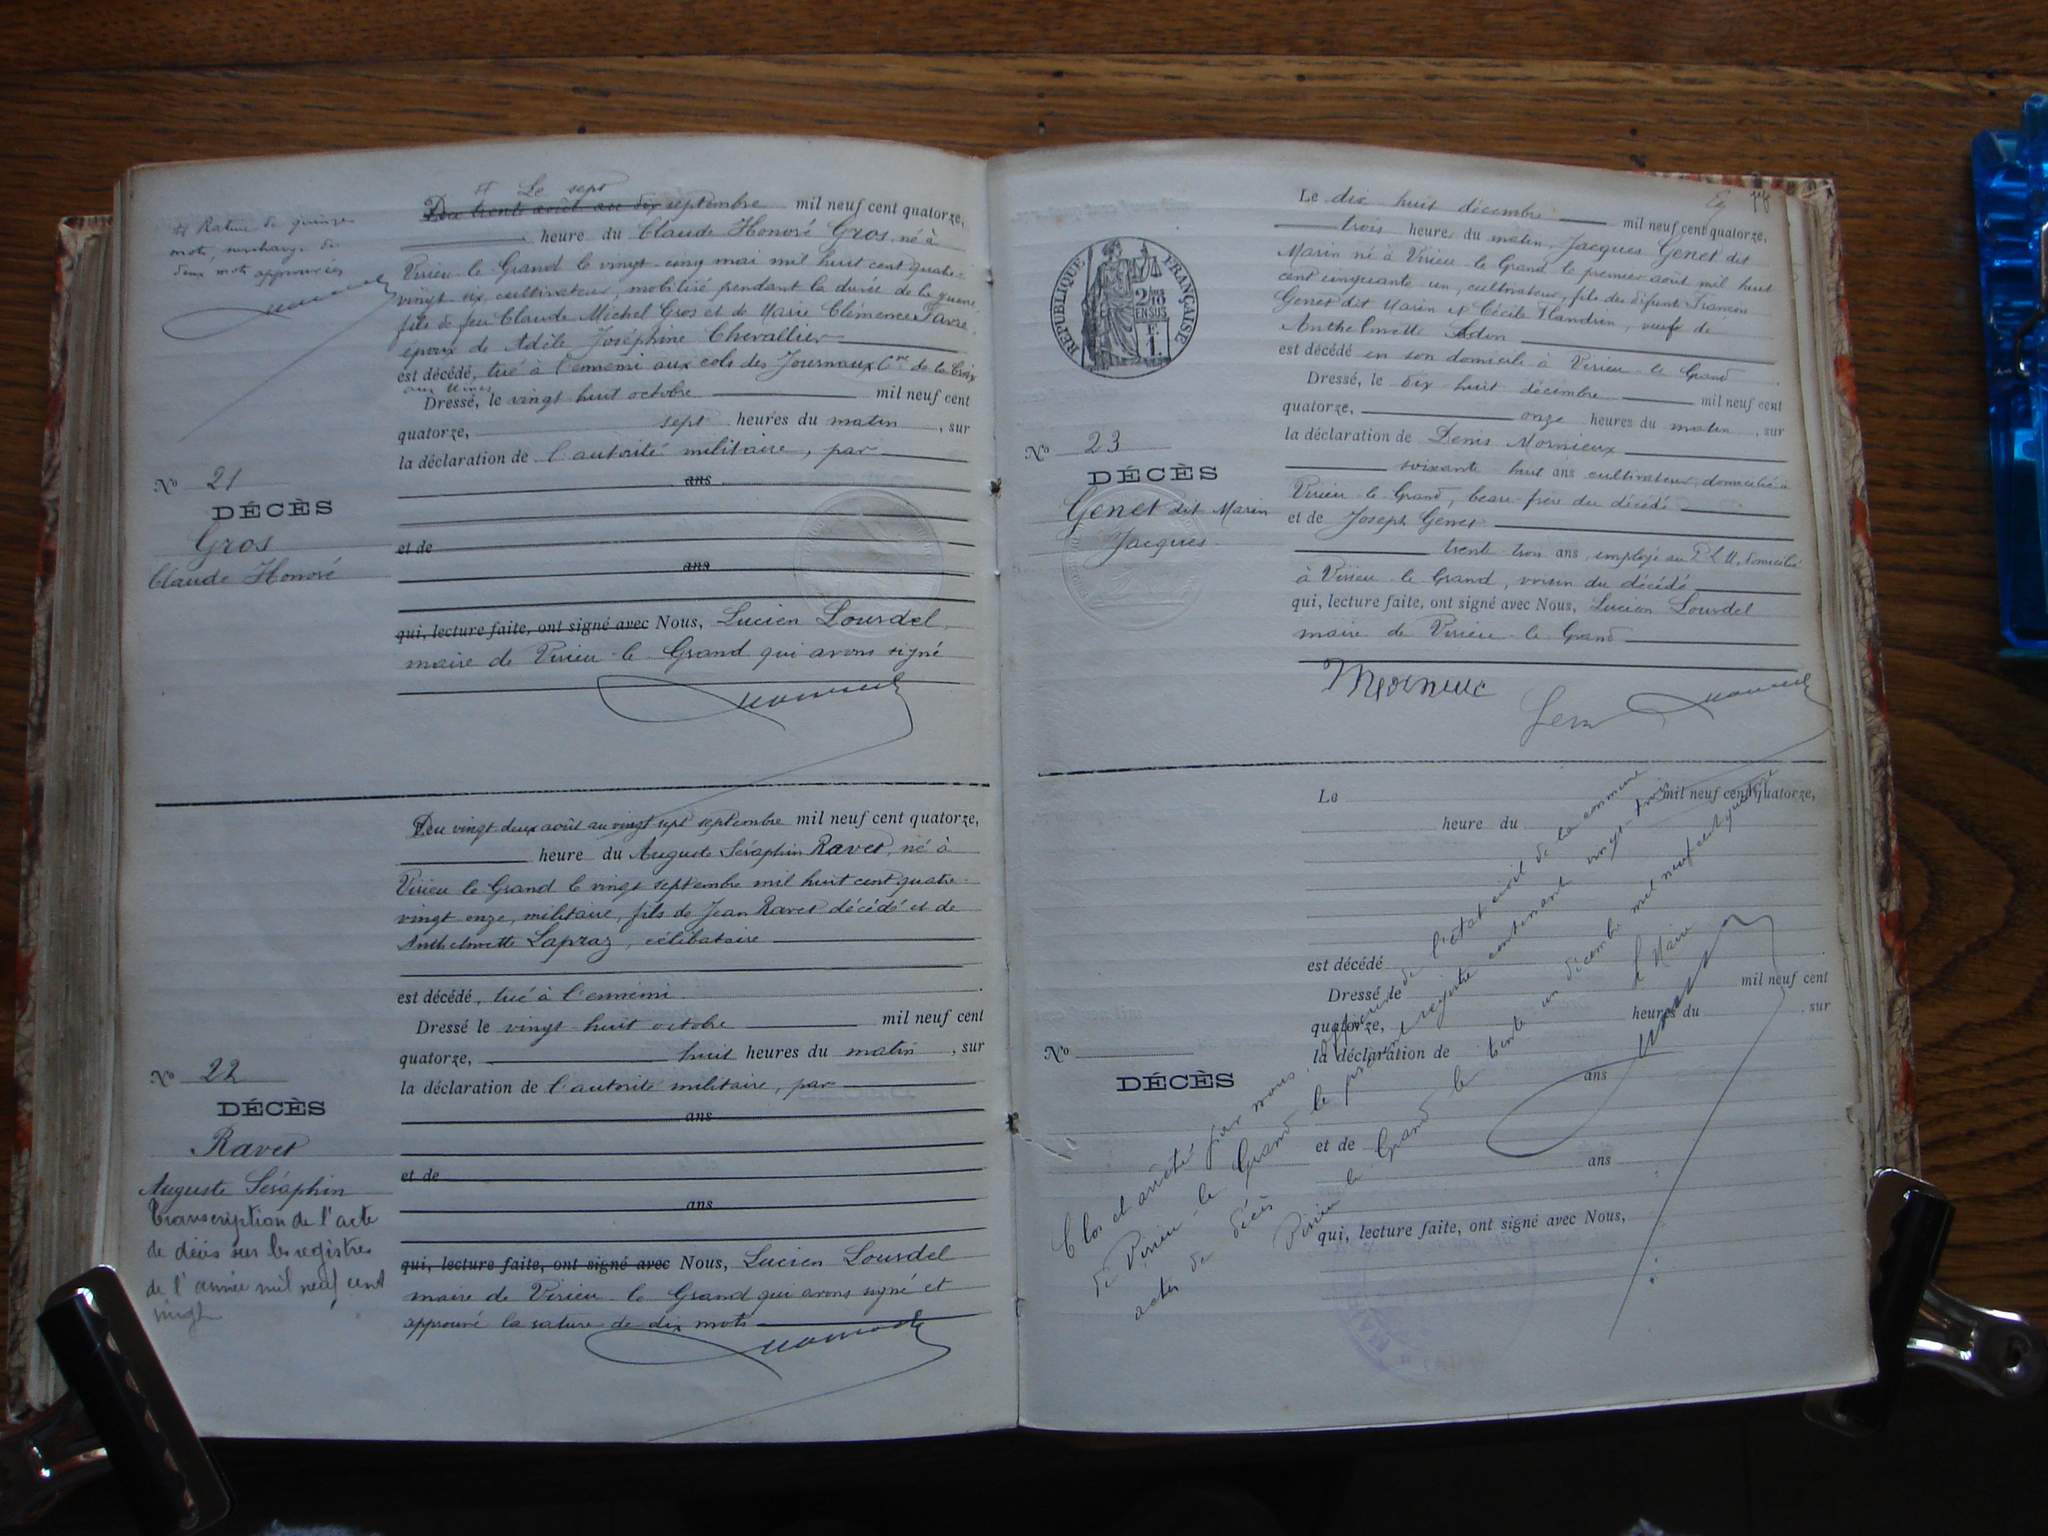 # Rature de quinze
mots, surcharge de
deux mots approuvées
# Le sept
Du trente août au dix septembre mil neuf cent quatorze,
heure du Claude Honoré Gros, né à
Virieu-le-Grand le vingt-cinq mai mil huit cent quatre-
vingt-six, cultivateur, mobilisé pendant la durée de la guerre,
fils de feu Claude Michel Gros et de Marie Clémence Favre,
époux de Adèle Joséphine Chevallier
est décédé, tué à l'ennemi aux cols des Journaux Cne de la Croix
aux Mines
Dressé, le vingt huit octobre mil neuf cent
quatorze, sept heures du matin, sur
la déclaration de l'autorité militaire, par
ans
et de
ans
qui, lecture faite, ont signé avec Nous, Lucien Lourdel,
maire de Virieu-le-Grand qui avons signé
No 21
DÉCÈS
Gros
Claude Honoré
Du vingt deux août au vingt sept septembre mil neuf cent quatorze,
heure du Auguste Séraphin Ravet, né à
Virieu le Grand le vingt septembre mil huit cent quatre-
vingt onze, militaire, fils de Jean Ravet décédé et de
Anthelmette Lapraz, célibataire
est décédé, tué à l'ennemi.
Dressé le vingt-huit octobre mil neuf cent
quatorze, huit heures du matin, sur
la déclaration de l'autorité militaire, par
ans
et de
ans
qui, lecture faite, ont signé avec Nous, Lucien Lourdel
maire de Virieu-le-Grand qui avons signé et
approuvé la rature de dix mots
No 22
DÉCÈS
Ravet
Auguste Séraphin
Transcription de l'acte
de décès sur les registres
de l'année mil neuf cent
vingt
RÉPUBLIQUE FRANÇAISE
2/10mes
EN SUS
1 F.
Le dix huit décembre mil neuf cent quatorze,
trois heures du matin, Jacques Genet dit
Marin né à Virieu-le-Grand le premier août mil huit
cent cinquante-un, cultivateur, fils des défunts François
Genet dit Marin et Cécile Flandrin, veuf de
Anthelmette
est décédé en son domicile à Virieu-le-Grand
Dressé, le dix-huit décembre mil neuf cent
quatorze, onze heures du matin, sur
la déclaration de Denis Mornieux
soixante huit ans cultivateur, domicilié à
Virieu-le-Grand, beau-frère du décédé
et de Joseph Genet
trente trois ans, employé au P.L.M, domicilié
à Virieu-le-Grand, voisin du décédé
qui, lecture faite, ont signé avec Nous, Lucien Lourdel
maire de Virieu-le-Grand
No 23
DÉCÈS
Genet dit Marin
Jacques
Le mil neuf cent quatorze,
heure du
est décédé
Dressé le mil neuf cent
quatorze, heures du , sur
la déclaration de
ans
et de
ans
qui, lecture faite, ont signé avec Nous,
No
DÉCÈS
Clos et arrêté par nous, officier de l'état civil de la commune
de Virieu-le-Grand le présent registre contenant vingt-trois
actes de décès
Virieu le Grand le trente un décembre mil neuf cent quatorze
Le Maire